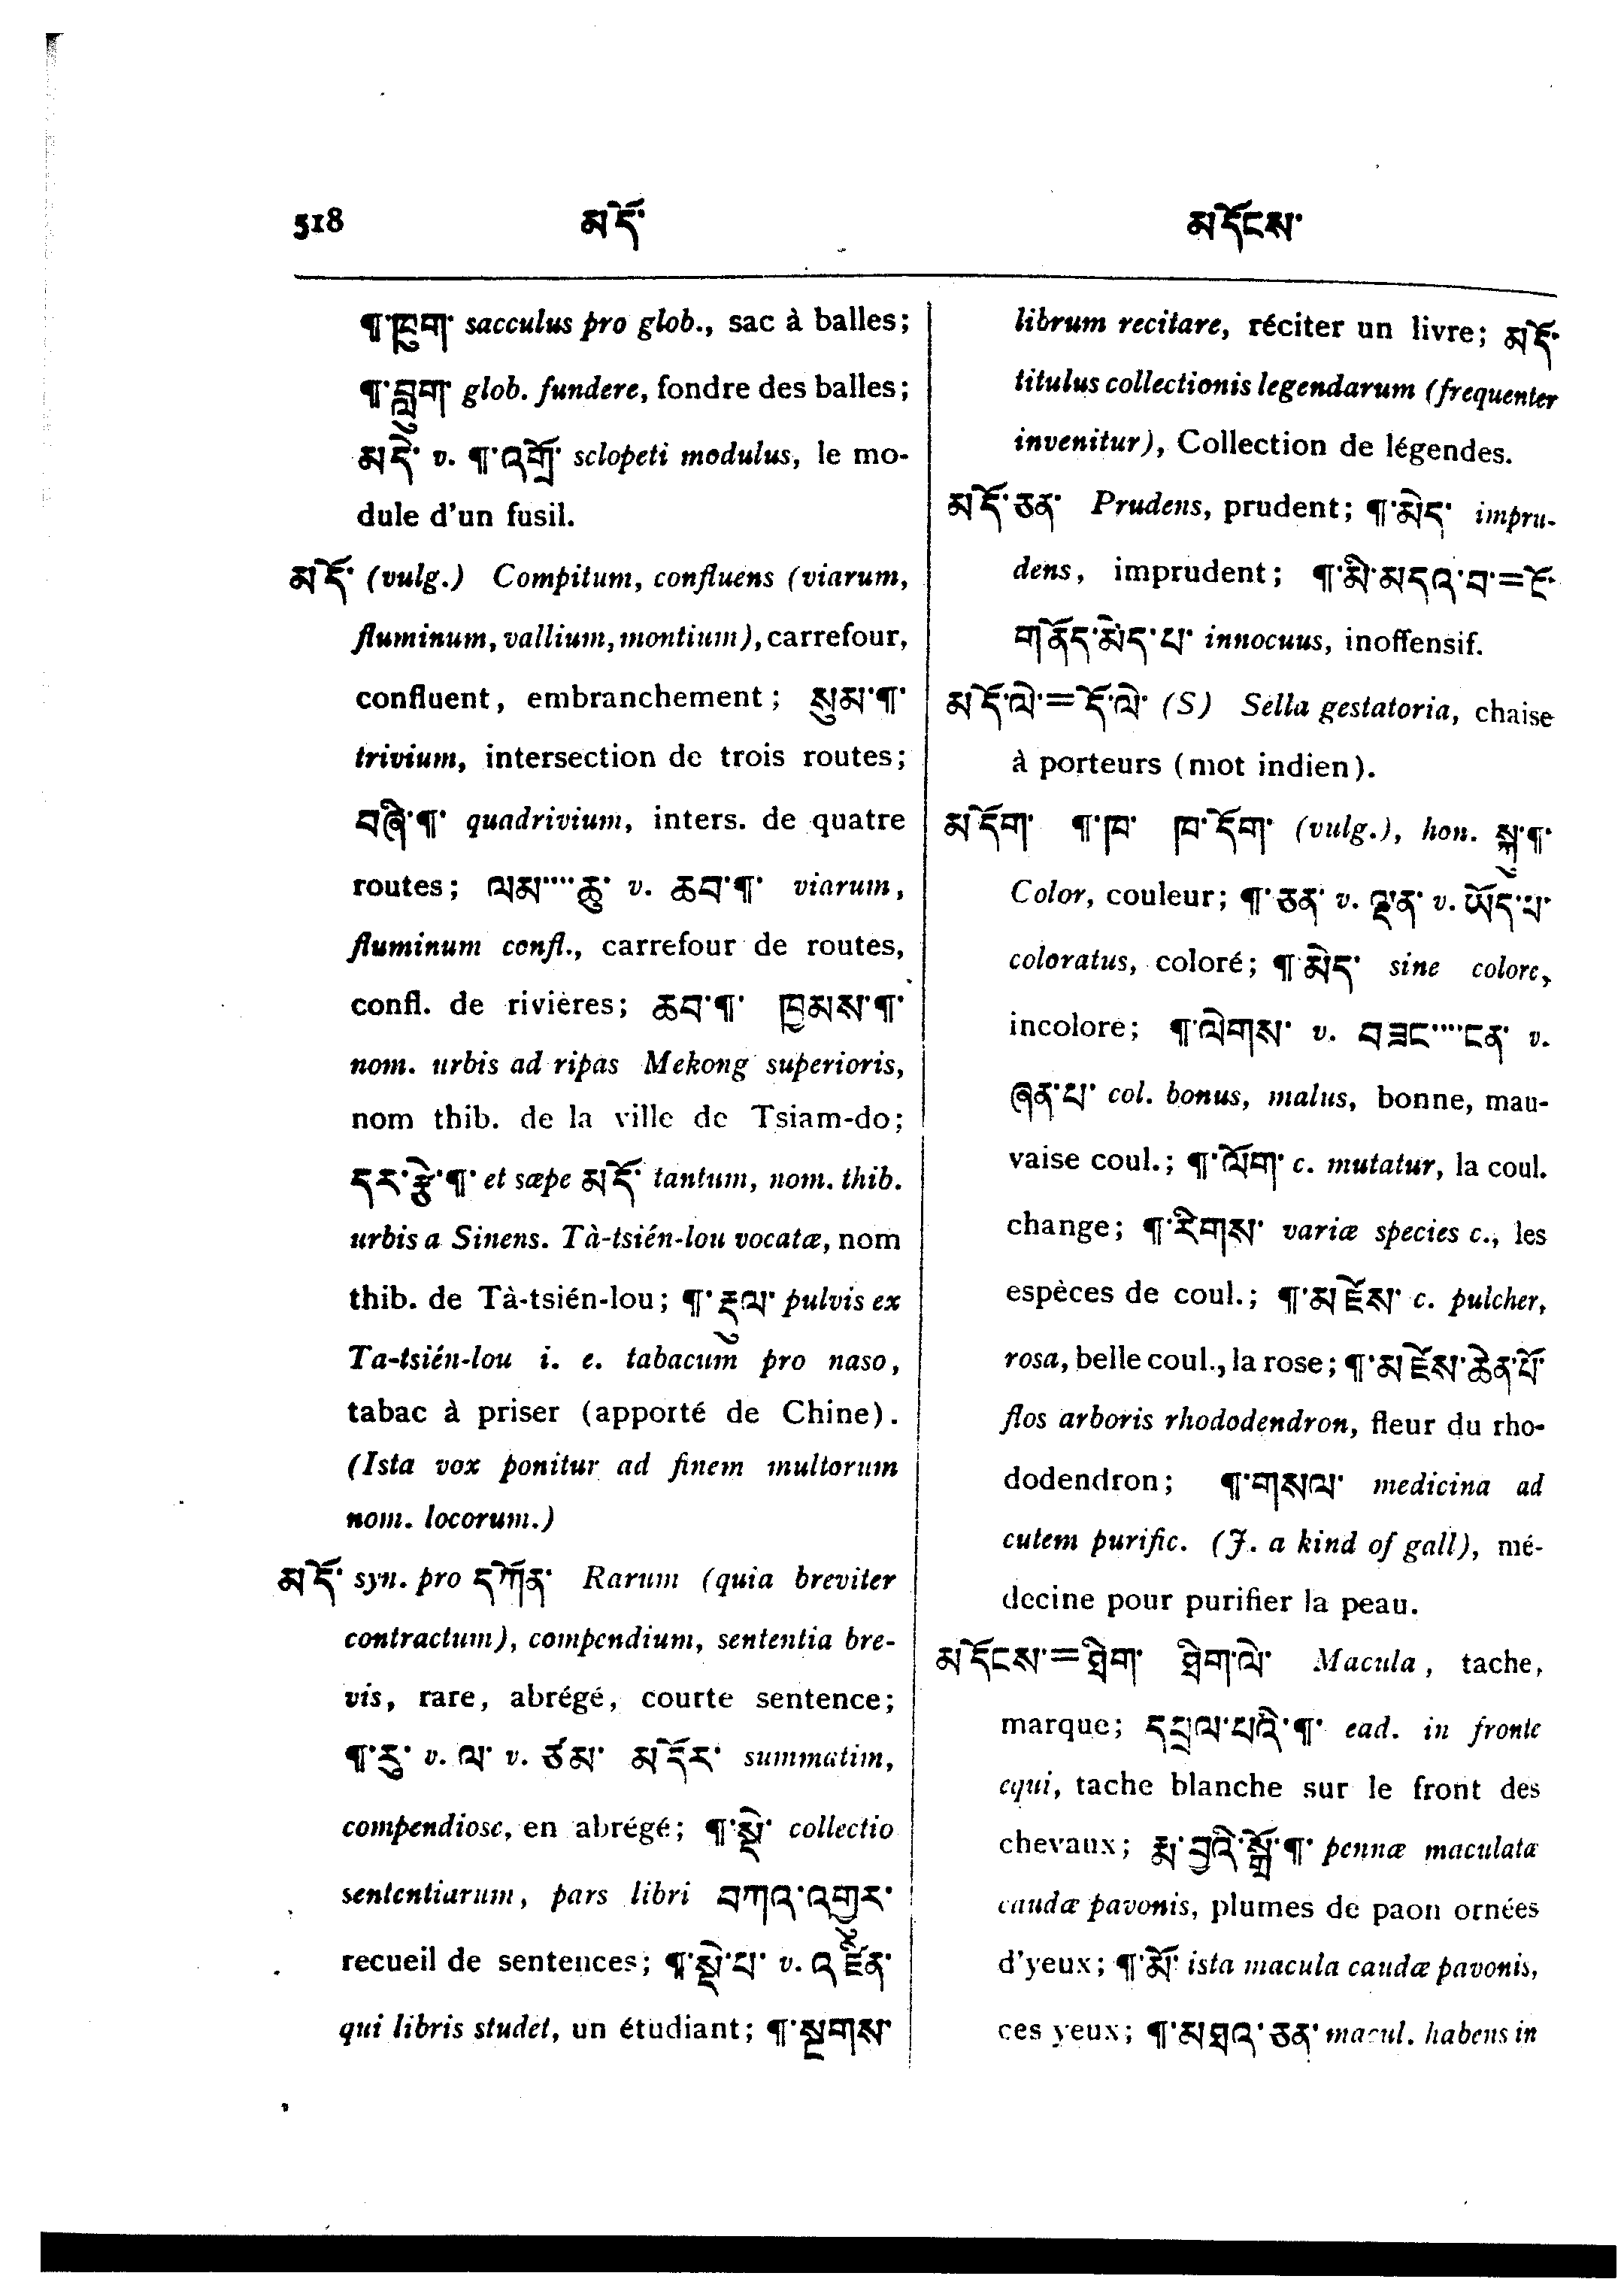 518 མདོ་ མདོངས་
¶་ཁུག་ sacculus pro glob., sac à balles;
¶་བླུག་ glob. fundere, fondre des balles;
མདེ་ v. ¶་འགྲོ་ sclopeti modulus, le mo-
dule d'un fusil.
མདོ་ (vulg.) Compitum, confluens (viarum,
fluminum, vallium, montium), carrefour,
confluent, embranchement; སུམ་¶་
trivium, intersection de trois routes;
བཞི་¶་ quadrivium, inters. de quatre
routes; ལམ་···ཆུ་ v. ཆབ་¶་ viarum,
fluminum confl., carrefour de routes,
confl. de rivières; ཆབ་¶་ ཁྱམས་¶་
nom. urbis ad ripas Mekong superioris,
nom thib. de la ville de Tsiam-do;
དར་རྩེ་¶་ et sæpe མདོ་ tantum, nom. thib.
urbis a Sinens. Tà-tsién-lou vocatæ, nom
thib. de Tà-tsién-lou; ¶་རྡུལ་ pulvis ex
Ta-tsién-lou i. e. tabacum pro naso,
tabac à priser (apporté de Chine).
(Ista vox ponitur ad finem multorum
nom. locorum.)
མདོ་ syn. pro དཀོན་ Rarum (quia breviter
contractum), compendium, sententia bre-
vis, rare, abrégé, courte sentence;
¶་རུ་ v. ལ་ v. ཙམ་ མདོར་ summatim,
compendiose, en abrégé; ¶་སྡེ་ collectio
sententiarum, pars libri བཀའ་འགྱུར་
recueil de sentences; ¶་སྡེ་པ་ v. འཛིན་
qui libris studet, un étudiant; ¶་སྔགས་
librum recitare, réciter un livre; མདོ་
titulus collectionis legendarum (frequenter
invenitur), Collection de légendes.
མདོ་ཅན་ Prudens, prudent; ¶་མེད་ impru-
dens, imprudent; ¶་མི་མདའ་བ་=ངོ་
གནོད་མེད་པ་ innocuus, inoffensif.
མདོ་ལེ་=དོ་ལེ་ (S) Sella gestatoria, chaise
à porteurs (mot indien).
མདོག་ ¶་ཁ་ ཁ་དོག་ (vulg.), hon. སྐུ་¶་
Color, couleur; ¶་ཅན་ v. ལྡན་ v. ཡོད་པ་
coloratus, coloré; ¶་མེད་ sine colore,
incolore; ¶་ལེགས་ v. བཟང་···ངན་ v.
ཞན་པ་ col. bonus, malus, bonne, mau-
vaise coul.; ¶་ལོག་ c. mutatur, la coul.
change; ¶་རིགས་ variæ species c., les
espèces de coul.; ¶་མཛེས་ c. pulcher,
rosa, belle coul., la rose; ¶་མཛེས་ཆེན་པོ་
flos arboris rhododendron, fleur du rho-
dodendron; ¶་གསལ་ medicina ad
cutem purific. (J. a kind of gall), mé-
decine pour purifier la peau.
མདོངས་=ཐིག་ ཐིག་ལེ་ Macula, tache,
marque; དཔྲལ་པའི་¶་ ead. in fronte
equi, tache blanche sur le front des
chevaux; རྨ་བྱའི་སྒྲོ་¶་ pennæ maculatæ
caudæ pavonis, plumes de paon ornées
d'yeux; ¶་མོ་ ista macula caudæ pavonis,
ces yeux; ¶་མཐའ་ཅན་ macul. habens in